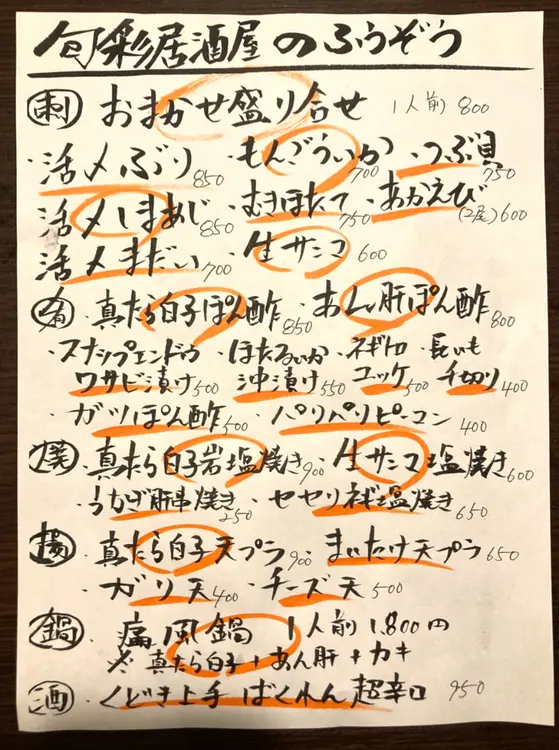 旬彩居酒屋 のふうぞう
刺 おまかせ盛り合せ 1人前 800
・活〆ぶり 850 ・もんごういか 700 ・つぶ貝 750
・活〆しまあじ 850 ・むきほたて 750 ・あかえび (2尾) 600
・活〆まだい 700 ・生サンマ 600
肴 ・真たら白子ぽん酢 850 ・あん肝ぽん酢 800
・スナップエンドウ ・ほたるいか ・ネギトロ ・長いも
ワサビ漬け 500 沖漬け 550 ユッケ 500 千切り 400
・ガツぽん酢 500 ・パリパリピーコン 400
焼 ・真たら白子岩塩焼き 900 ・生サンマ塩焼き 600
・うなぎ肝串焼き 250 ・セセリネギ塩焼き 650
揚 ・真たら白子天プラ 900 ・まいたけ天プラ 650
・ガリ天 400 ・チーズ天 500
鍋 ・痛風鍋 1人前 1,800円
※ 真たら白子+あん肝+カキ
酒 ・くどき上手 ばくれん 超辛口 950